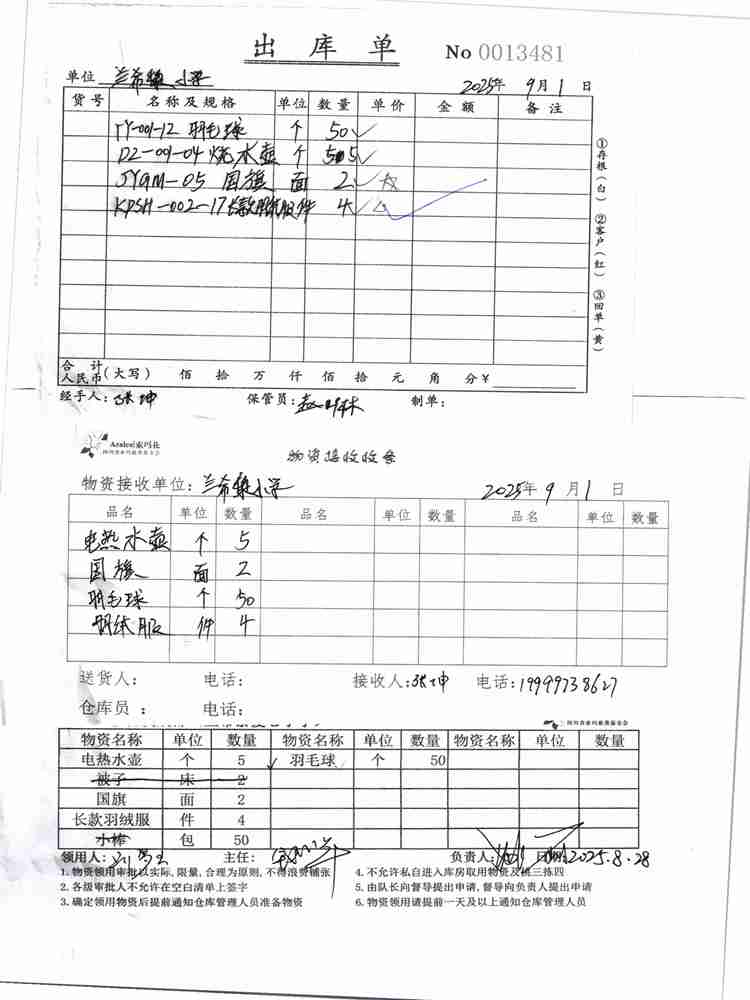 出库单 No 0013481
单位 兰希镇小学 2025年 9月 1 日
货号 名称及规格 单位 数量 单价 金额 备注
TY-001-12 羽毛球 个 50 ✓
DZ-001-04 烧水壶 个 5 ✓
JYGM-05 国旗 面 2 ✓
KDSH-002-17 长款羽绒服 件 4 ✓
①存根(白) ②客户(红) ③回单(黄)
合计人民币(大写) 佰 拾 万 仟 佰 拾 元 角 分 ¥
经手人: 张坤 保管员: 制单:
Azalea索玛花
物资接收收条
物资接收单位: 兰希镇小学 2025年 9 月 1 日
品名 单位 数量 品名 单位 数量 品名 单位 数量
电热水壶 个 5
国旗 面 2
羽毛球 个 50
羽绒服 件 4
送货人: 电话: 接收人: 张坤 电话: 19999738627
仓库员: 电话:
物资名称 单位 数量 物资名称 单位 数量 物资名称 单位 数量
电热水壶 个 5 ✓ 羽毛球 个 50
被子 床 2
国旗 面 2
长款羽绒服 件 4
水棒 包 50
领用人: 主任: 负责人: 日期: 2025.8.28
1.物资领用审批以实际,限量,合理为原则,不得浪费铺张 4.不允许私自进入库房取用物资及挑三拣四
2.各级审批人不允许在空白清单上签字 5.由队长向督导提出申请,督导向负责人提出申请
3.确定领用物资后提前通知仓库管理人员准备物资 6.物资领用请提前一天及以上通知仓库管理人员